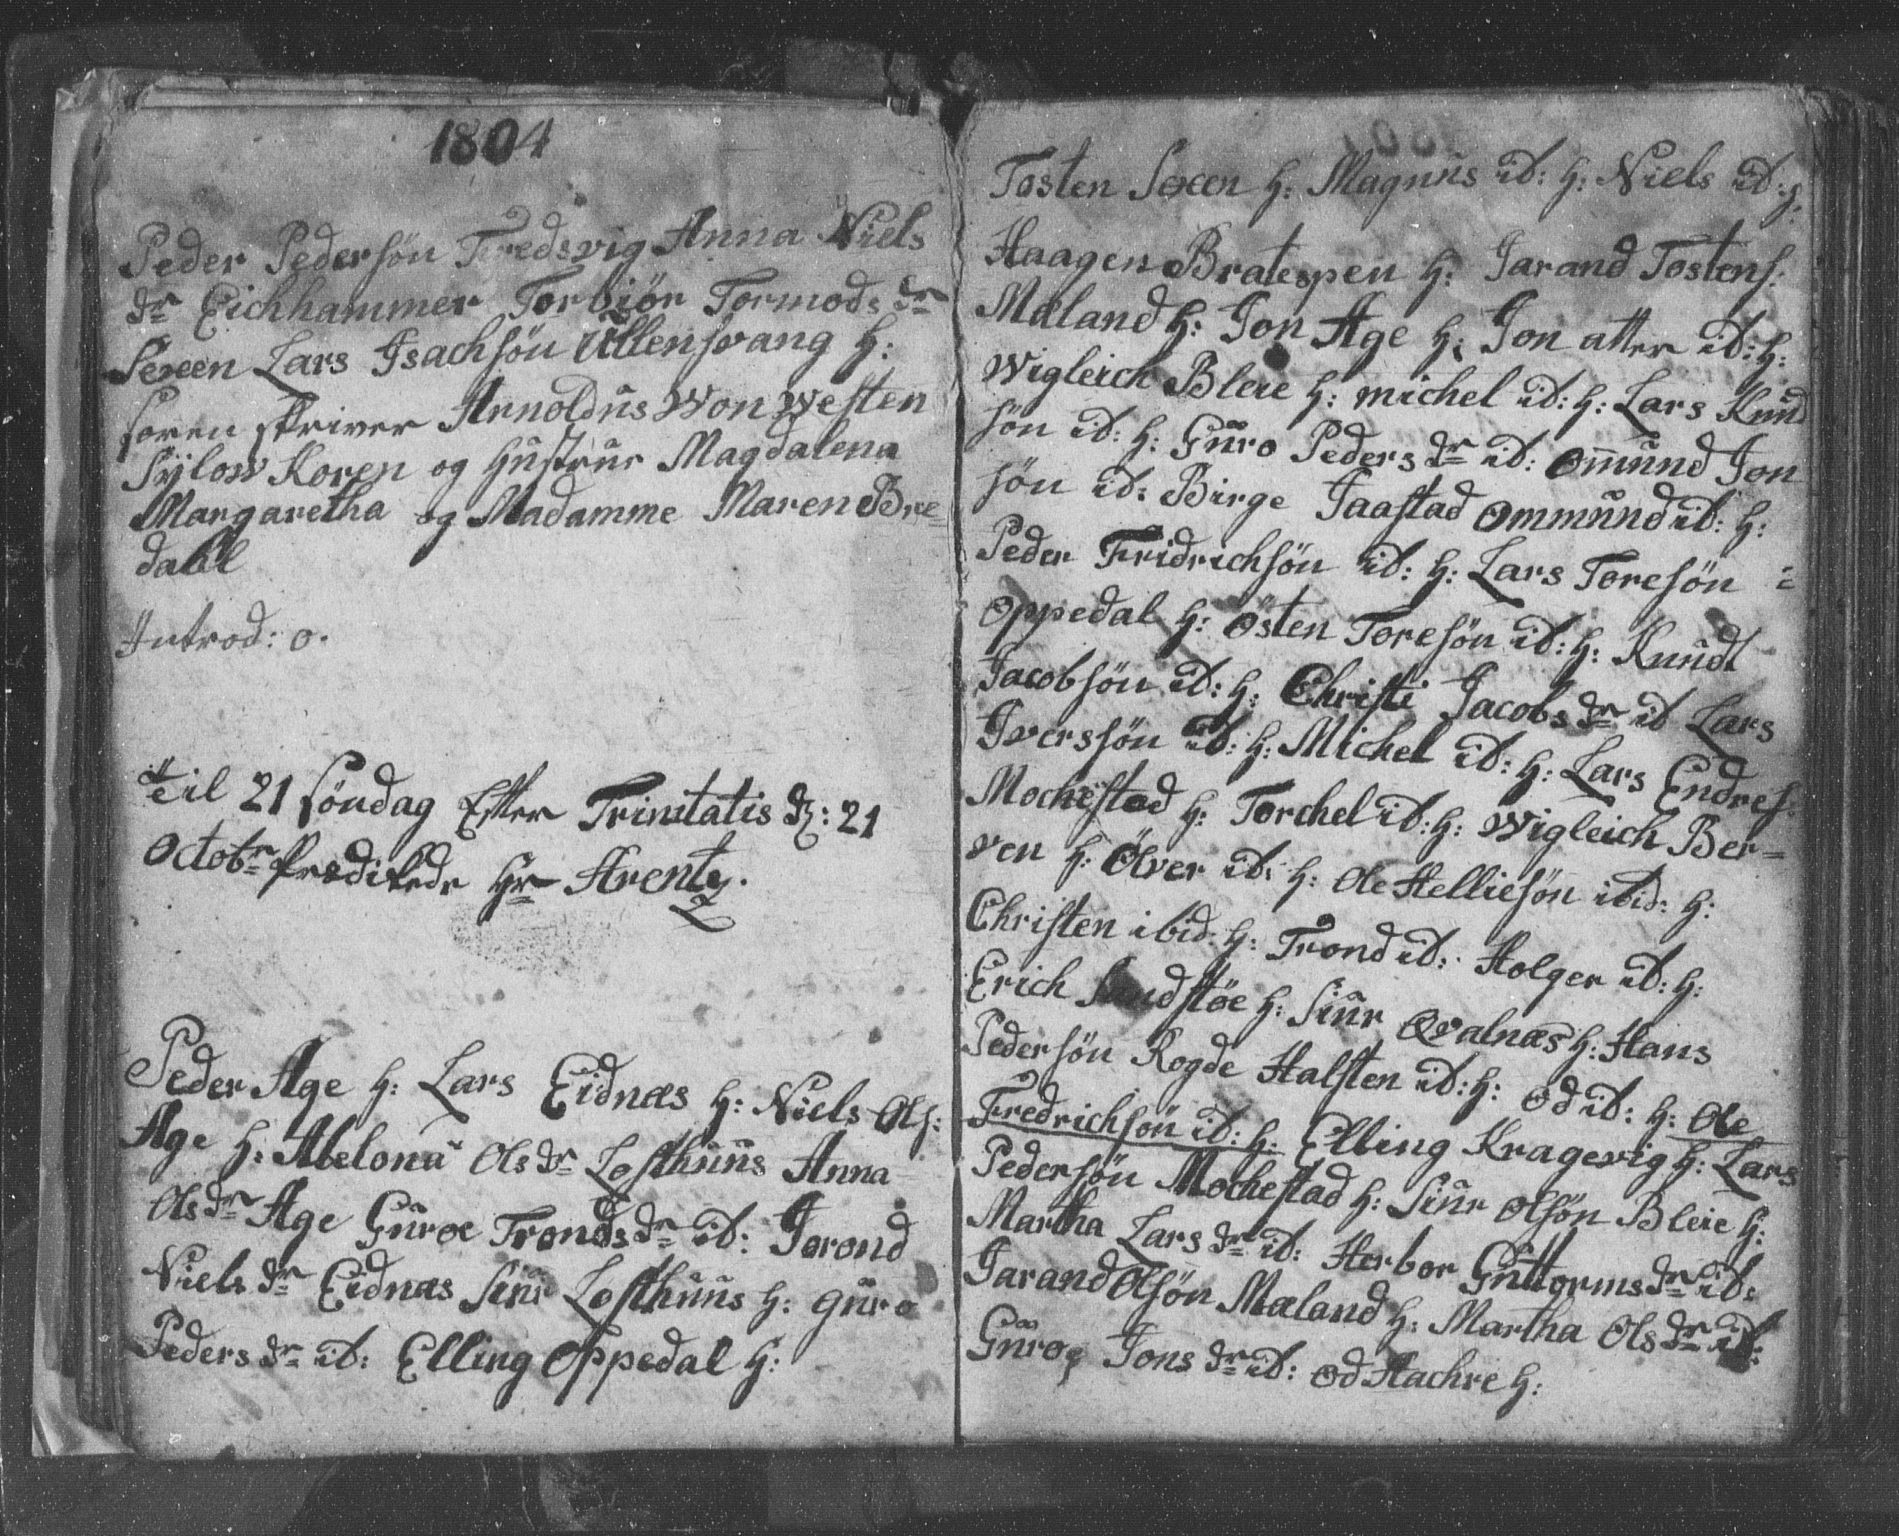 1804
Peder Pedersön Fredsvig Anna Niels
dr Eichhammer Torbiör Tormods dr
Sexeen Lars Isachsön Üllensvang H:
soren skriver Arnoldus Won Westen
Sÿlow Koren og Hustrue Magdalena
Margaretha og Madamme Maren Bre=
dahl
Introd: o.
Til 21 Söndag Efter Trinitatis d: 21
Octobr Prædikede Hr Arentz.
Peder Age H: Lars Eidnæs H: Niels Ols:
Age H: Abelona Ols dr Lofthüüs Anna
Ols dr Age Güroe Tronds dr id: Jorond
Niels dr Eidnæs Siur Lofthüüs H: Güro
Peders dr id: Elling Oppedal H:
Tosten Sexeen H: Magnus id: H: Niels id: H:
Haagen Bratespen H: Jarand Tostens:
Mæland H: Jon Age H: Jon atter id: H:
Wigleich Bleie H: Michel id: H: Lars Knud
sön id: H: Güro Peders dr id: Omünd Jon
sön id: Birge Jaastad Ommünd id: H:
Peder Fridrichsön id: H: Lars Toresön
Oppedal H: Östen Toresön id: H: Knudt
Jacobsön id: H: Christi Jacobs dr id Lars
Iverssön id: H: Michel id: H: Lars Endres:
Mochestad H: Torchel id: H: Wigleich Ber=
ven H: Ölver id: H: Ole Helliesön ibid: H:
Christen ibid: H: Trond id: Holger id: H:
Erich Sandstöe H: Siür Qvalnæs H: Hans
Pedersön Rogde Halsten id: H: Od id: H: Ole
Fredrichsön id: H: Elling Kragevig H: Lars
Pedersön Mochestad H: Siür Olsön Bleie H:
Martha Lars dr id: Herbor Güttorms dr id:
Jarand Olsön Mæland H: Martha Ols dr id:
Güroe Jons dr id: Od Hachre H: